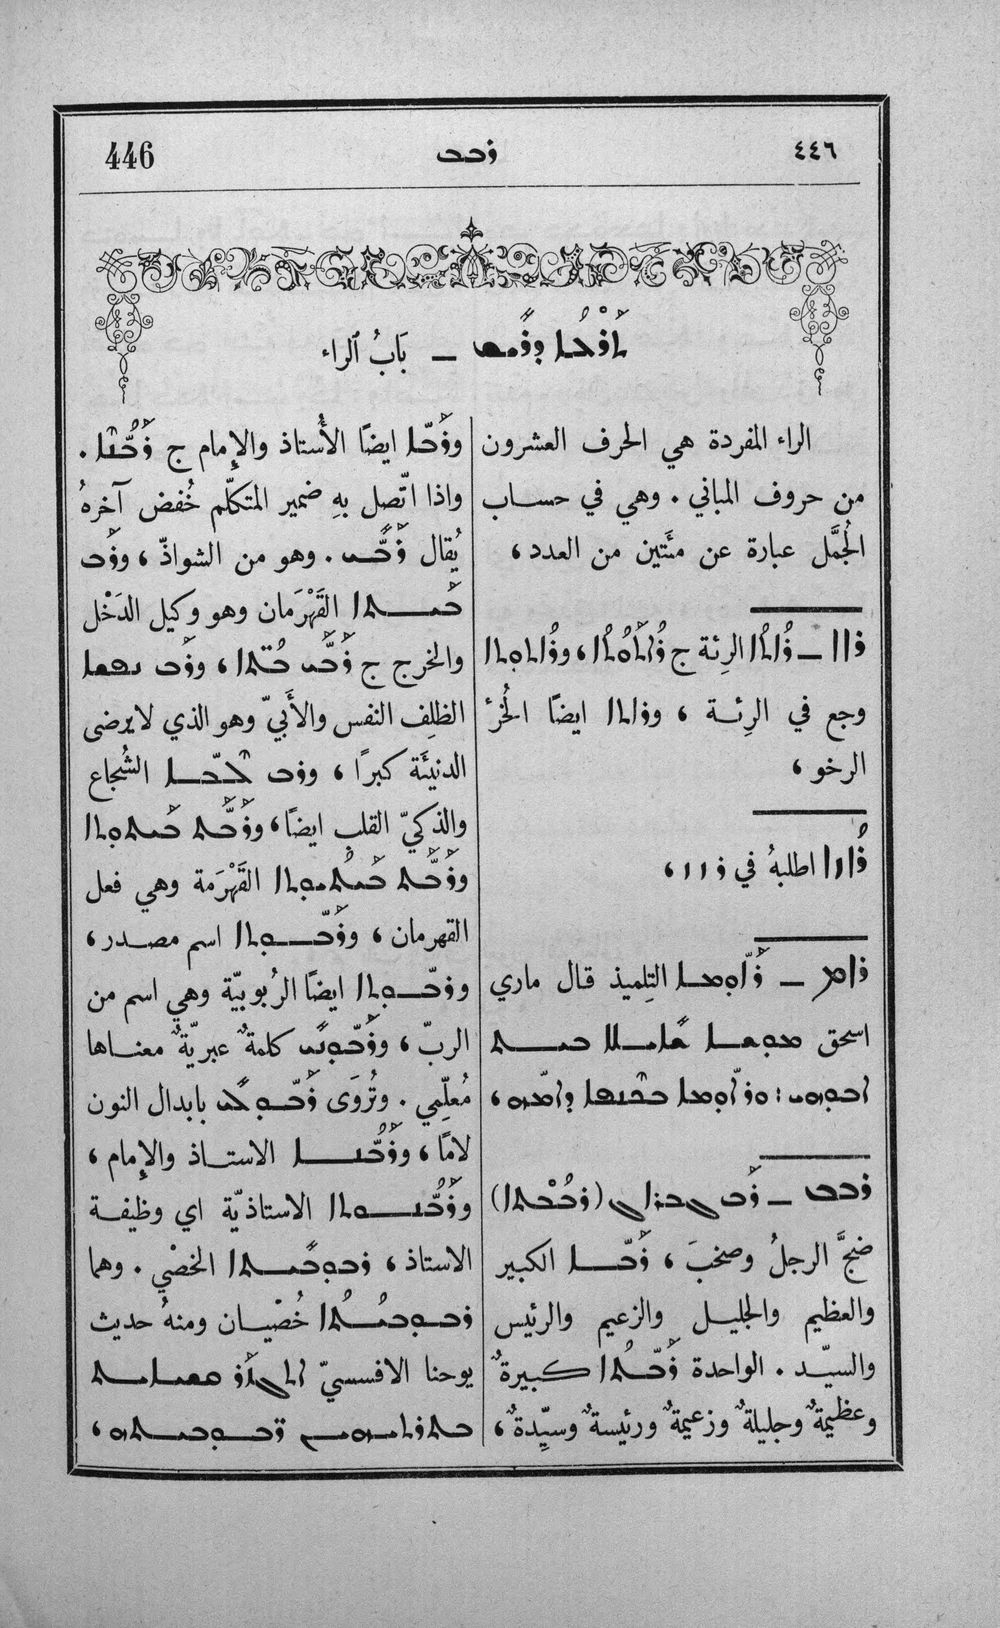 446 ܪܒܒ ٤٤٦
ܬܰܪܥܳܐ ܕܪܺܝܫ — بَابُ ٱلراء
الراء المفردة هي الحرف العشرون
من حروف المباني . وهي في حساب
الجُمَّل عبارة عن مئَتين من العدد ،
ܪܐܐ — الرِئة ج
وجع في الرِئة ، ܘܪܐܬܐ ايضًا الخُرْ
الرخو ،
اطلبهُ في
ܪܐܡ — التِلميذ قال ماري
اسحق
ܪܒܒ —
ضجَّ الرجلُ وصخبَ ، ܪܰܒܳܐ الكبير
والعظيم والجليل والزعيم والرئيس
والسيّد . الواحدة ܪܰܒܬܳܐ كبيرةٌ
وعظيمةٌ وجليلةٌ وزعيمةٌ ورئيسةٌ وسيِّدةٌ ،
ܘܪܰܒܳܐ ايضًا الأُستاذ والإِمام ج ܪ̈ܰܒܳܢܶܐ .
واذا اتّصل بهِ ضمير المتكلّم خُفض آخرهُ
يُقال ܪܰܒܝ . وهو من الشواذّ ، ܘܪܰܒ
ܒܰܝܬܐ القَهْرَمان وهو وكيل الدَخْل
والخرج ج ܪܰܒܰܝ ܒܳܬ̈ܐ ، ܘܪܰܒ ܢܦܫܐ
الظلِف النفس والأَبيّ وهو الذي لايرضى
الدنيئَة كبرًا ، ܘܪܒ ܠܒܐ الشُجاع
والذكيّ القلب ايضًا ، ܘܪܰܒܰܬ ܒܰܝܬܘܬܐ
ܘܪܰܒܰܬ ܒܰܝܬܳܝܘܬܐ القَهْرَمة وهي فعل
القهرمان ، ܘܪܰܒܘܬܐ اسم مصدر ،
ܘܪܒܘܬܐ ايضًا الرُبوبيّة وهي اسم من
الربّ ، ܘܪܰܒܘܢܝ كلمةٌ عبريّةٌ معناها
مُعلِّمي . وتُروَى ܪܰܒܘܠܝ بابدال النون
لامًا ، ܘܪܰܒܳܢܐ الاستاذ والإِمام ،
ܘܪܰܒܳܢܘܬܐ الاستاذيّة اي وظيفة
الاستاذ ، الخصْي . وهما
خُصْيان ومنهُ حديث
يوحنا الافسسيّ